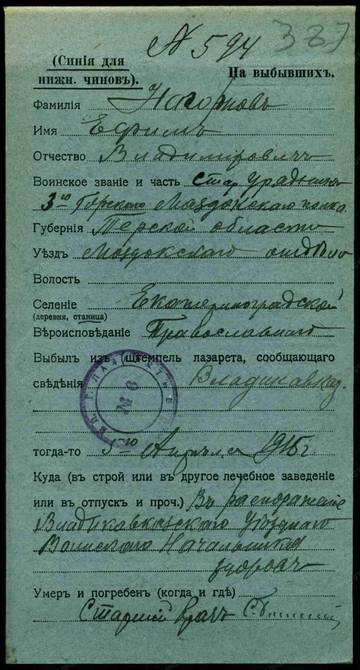 № 594
387
(Синія для
нижн. чиновъ).
На выбывшихъ.
Фамилія Нагорновъ
Имя Ефимъ
Отчество Владиміровичъ
Воинское званіе и часть Стар. урядникъ
3го Горско Моздокскаго полка
Губернія Терской области
Уѣздъ Моздокскаго отдѣла
Волость
Селеніе Екатериноградской
(деревня, станица)
Вѣроисповѣданіе Православнаго
Выбылъ изъ (штемпель лазарета, сообщающаго
свѣдѣнія Владикавказ.
№ 6
тогда-то 3го Апрѣля 1915 г.
Куда (въ строй или въ другое лечебное заведеніе
или въ отпускъ и проч.) Въ распоряженіе
Владикавказскаго Уѣзднаго
Воинскаго Начальника
здоровъ
Умеръ и погребенъ (когда и гдѣ)
Старшій врачъ